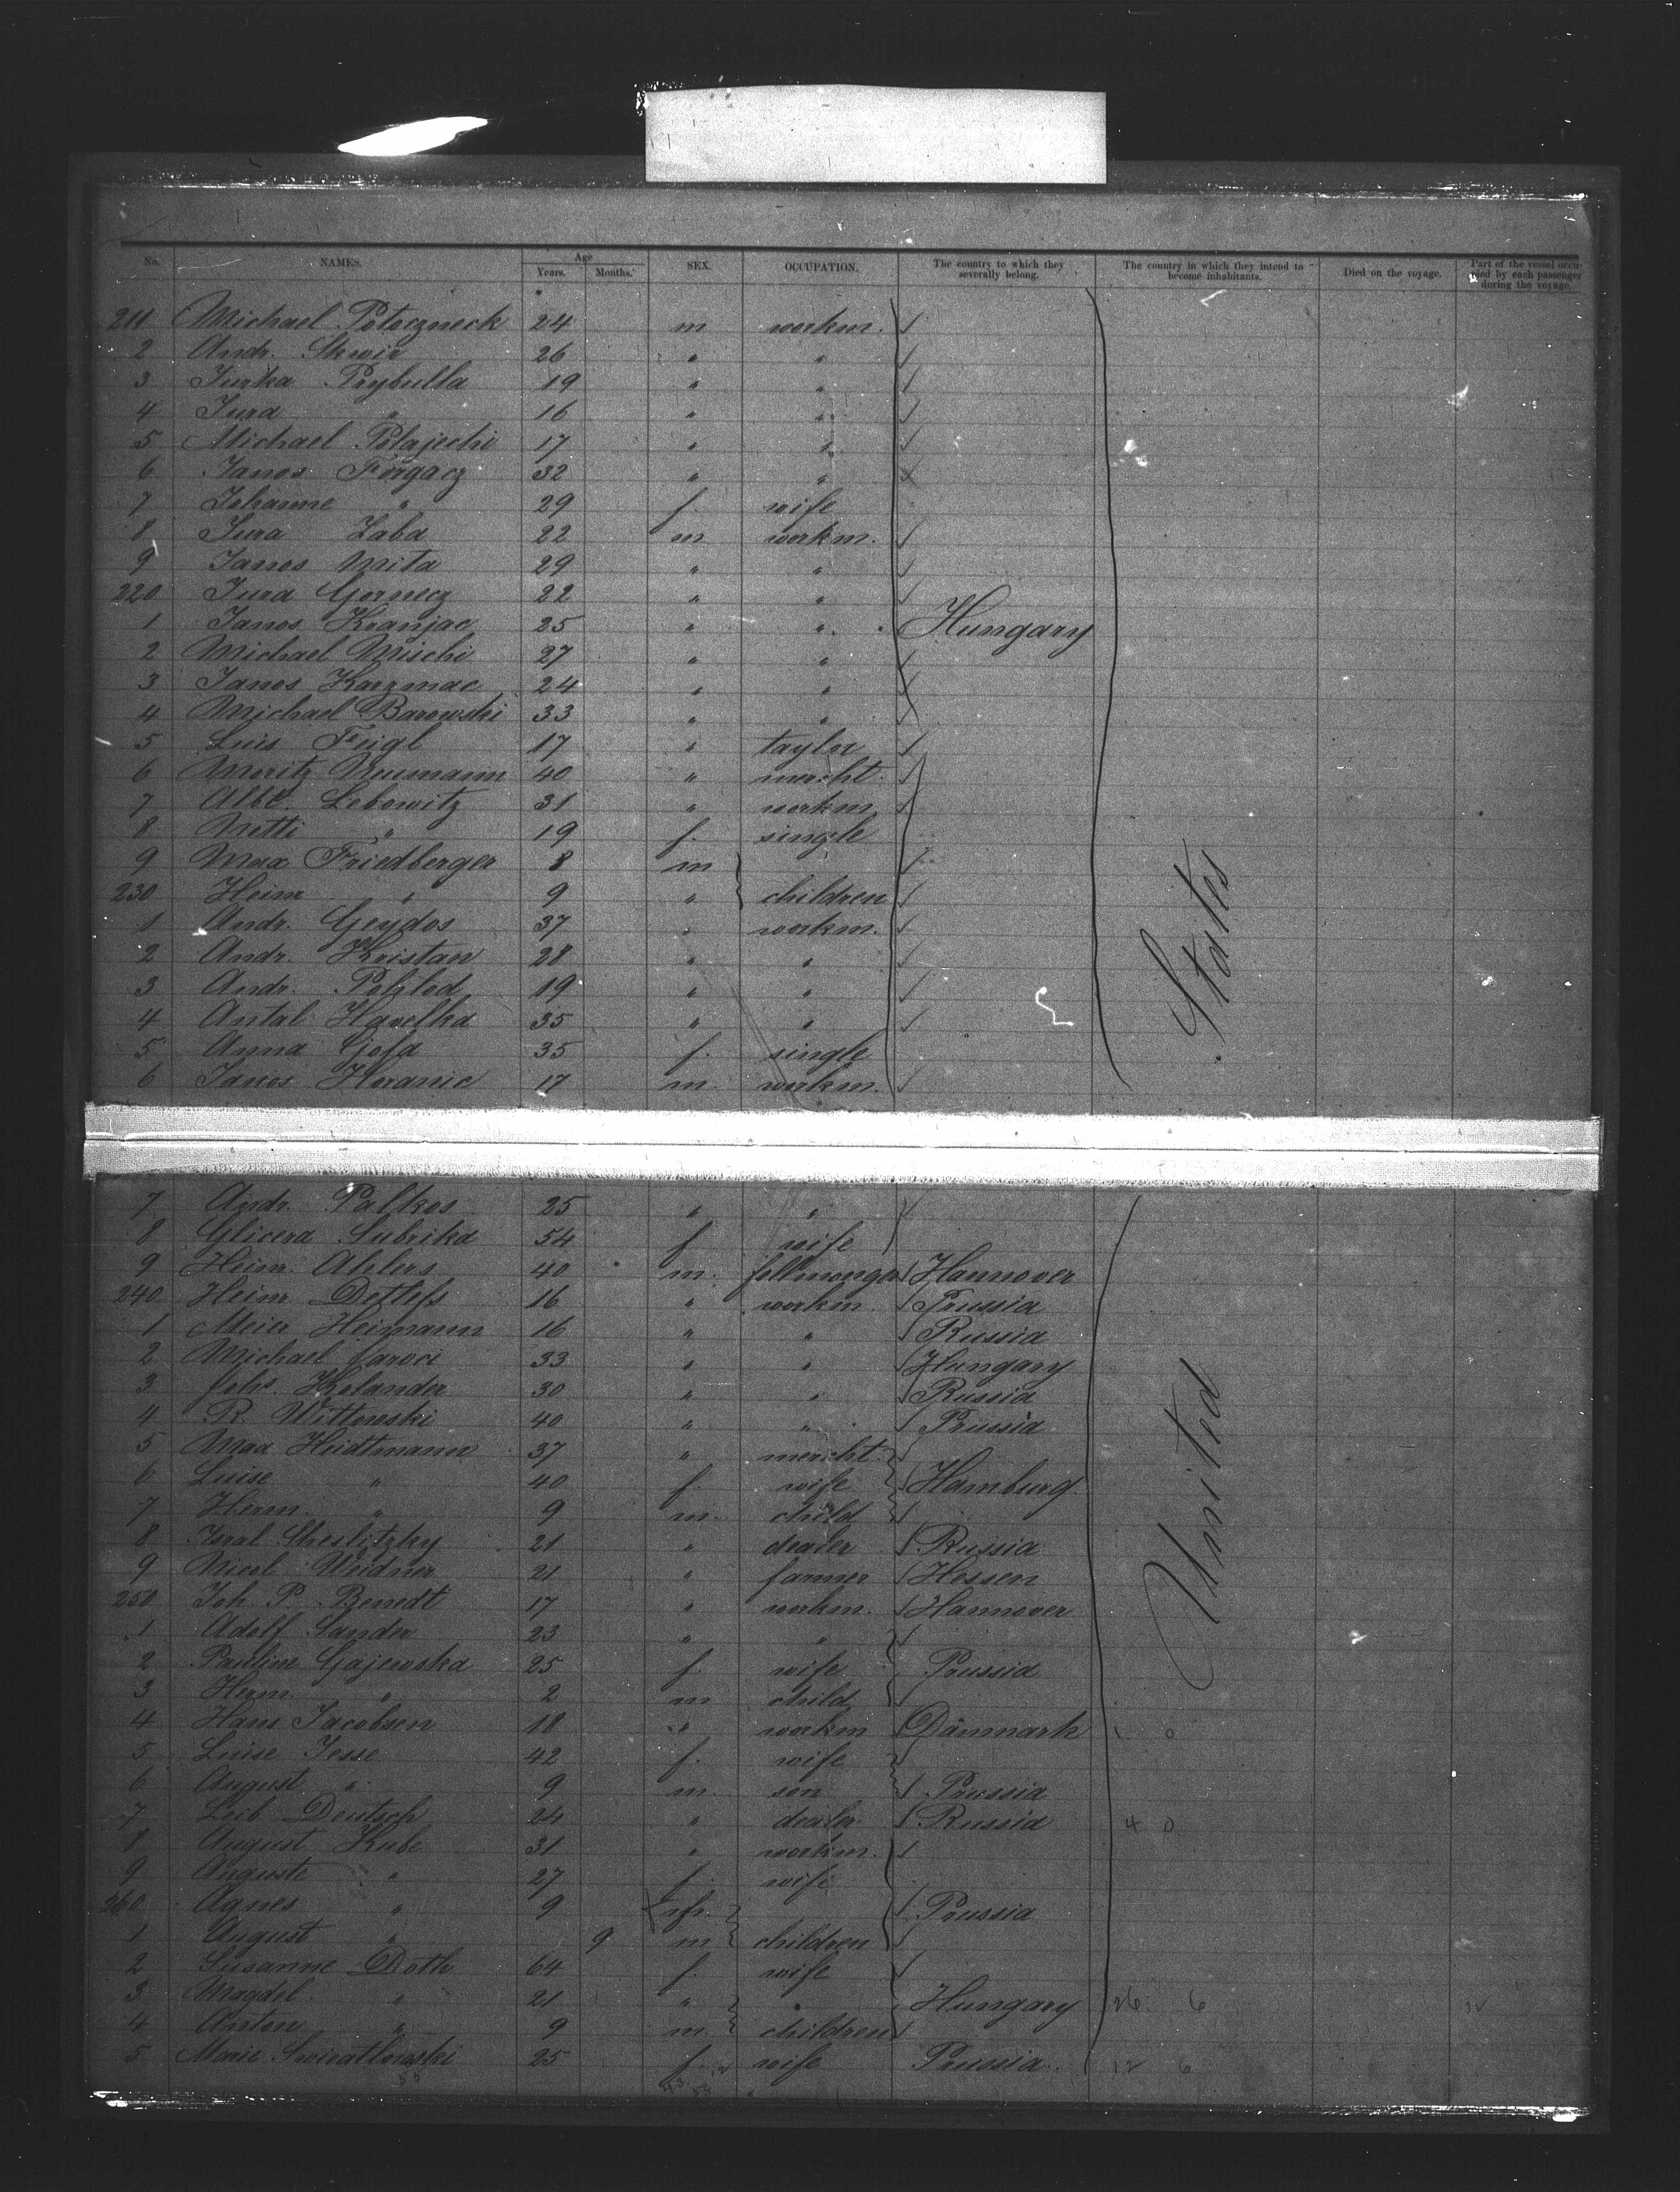 No. NAMES. Age Years. Months. SEX. OCCUPATION. The country to which they severally belong. The country in which they intend to become inhabitants. Died on the voyage. Part of the vessel occupied by each passenger during the voyage.
211 Michael Potoczneck 24 m workm.
2 Andr. Skwir 26 " "
3 Jurka Prybulla 19 " "
4 Jura " 16 " "
5 Michael Polajechi 17 " "
6 Janos Forgacz 32 " "
7 Johanne " 29 f. wife
8 Jura Zaba 22 m workm.
9 Janos Mita 29 " "
220 Jura Gornecz 22 " "
1 Janos Kranjac 25 " " Hungary
2 Michael Mischi 27 " "
3 Janos Karzmac 24 " "
4 Michael Barowski 33 " "
5 Luis Feigl 17 " taylor
6 Moritz Neumann 40 " mercht.
7 Albt. Lebowitz 31 " workm
8 Netti " 19 f. single
9 Max Friedberger 8 m
230 Heinr " 9 " children
1 Andr. Geydos 37 " workm.
2 Andr. Kristan 28 " "
3 Andr. Pohlod 19 " "
4 Antal Havelka 35 " "
5 Anna 35 f. single
6 Janos Horanic 17 m. workm.
States
7 Andr. Palkos 25 " "
8 Glicera Subrika 54 f wife
9 Heinr. Ahlers 40 m. fellmonger Hannover
240 Heinr Detlefs 16 " workm. Prussia
1 Meier Heimann 16 " " Russia
2 Michael Caroci 33 " " Hungary
3 Johs. Kolander 30 " " Russia
4 R. Wittowski 40 " " Prussia
5 Max Heidtmann 37 " mercht.
6 Luise " 40 f. wife Hamburg
7 Herm. " 9 m. child
8 Isral Sheslitzky 21 " dealer Russia
9 Nicol Weidner 21 " farmer Hessen
250 Joh. P. Benedt 17 " workm. Hannover
1 Adolf Sander 23 " "
2 Pauline Gajewska 25 f. wife Prussia
3 Herm. " 2 m child
4 Hans Jacobsen 18 " workm Dänmark
5 Luise Jesse 42 f. wife
6 August " 9 m. son Prussia
7 Leib Deutsch 24 " dealer Russia 4 0
8 August Kube 31 " workm.
9 Auguste " 27 f. wife
260 Agnes " 9 f. Prussia
1 August " 9 m children
2 Susanne Doth 64 f. wife
3 Magdel. " 21 " " Hungary 26 6
4 Anton " 9 m. children
5 Marie Swiratlowski 25 f. wife Prussia. 12 6
United